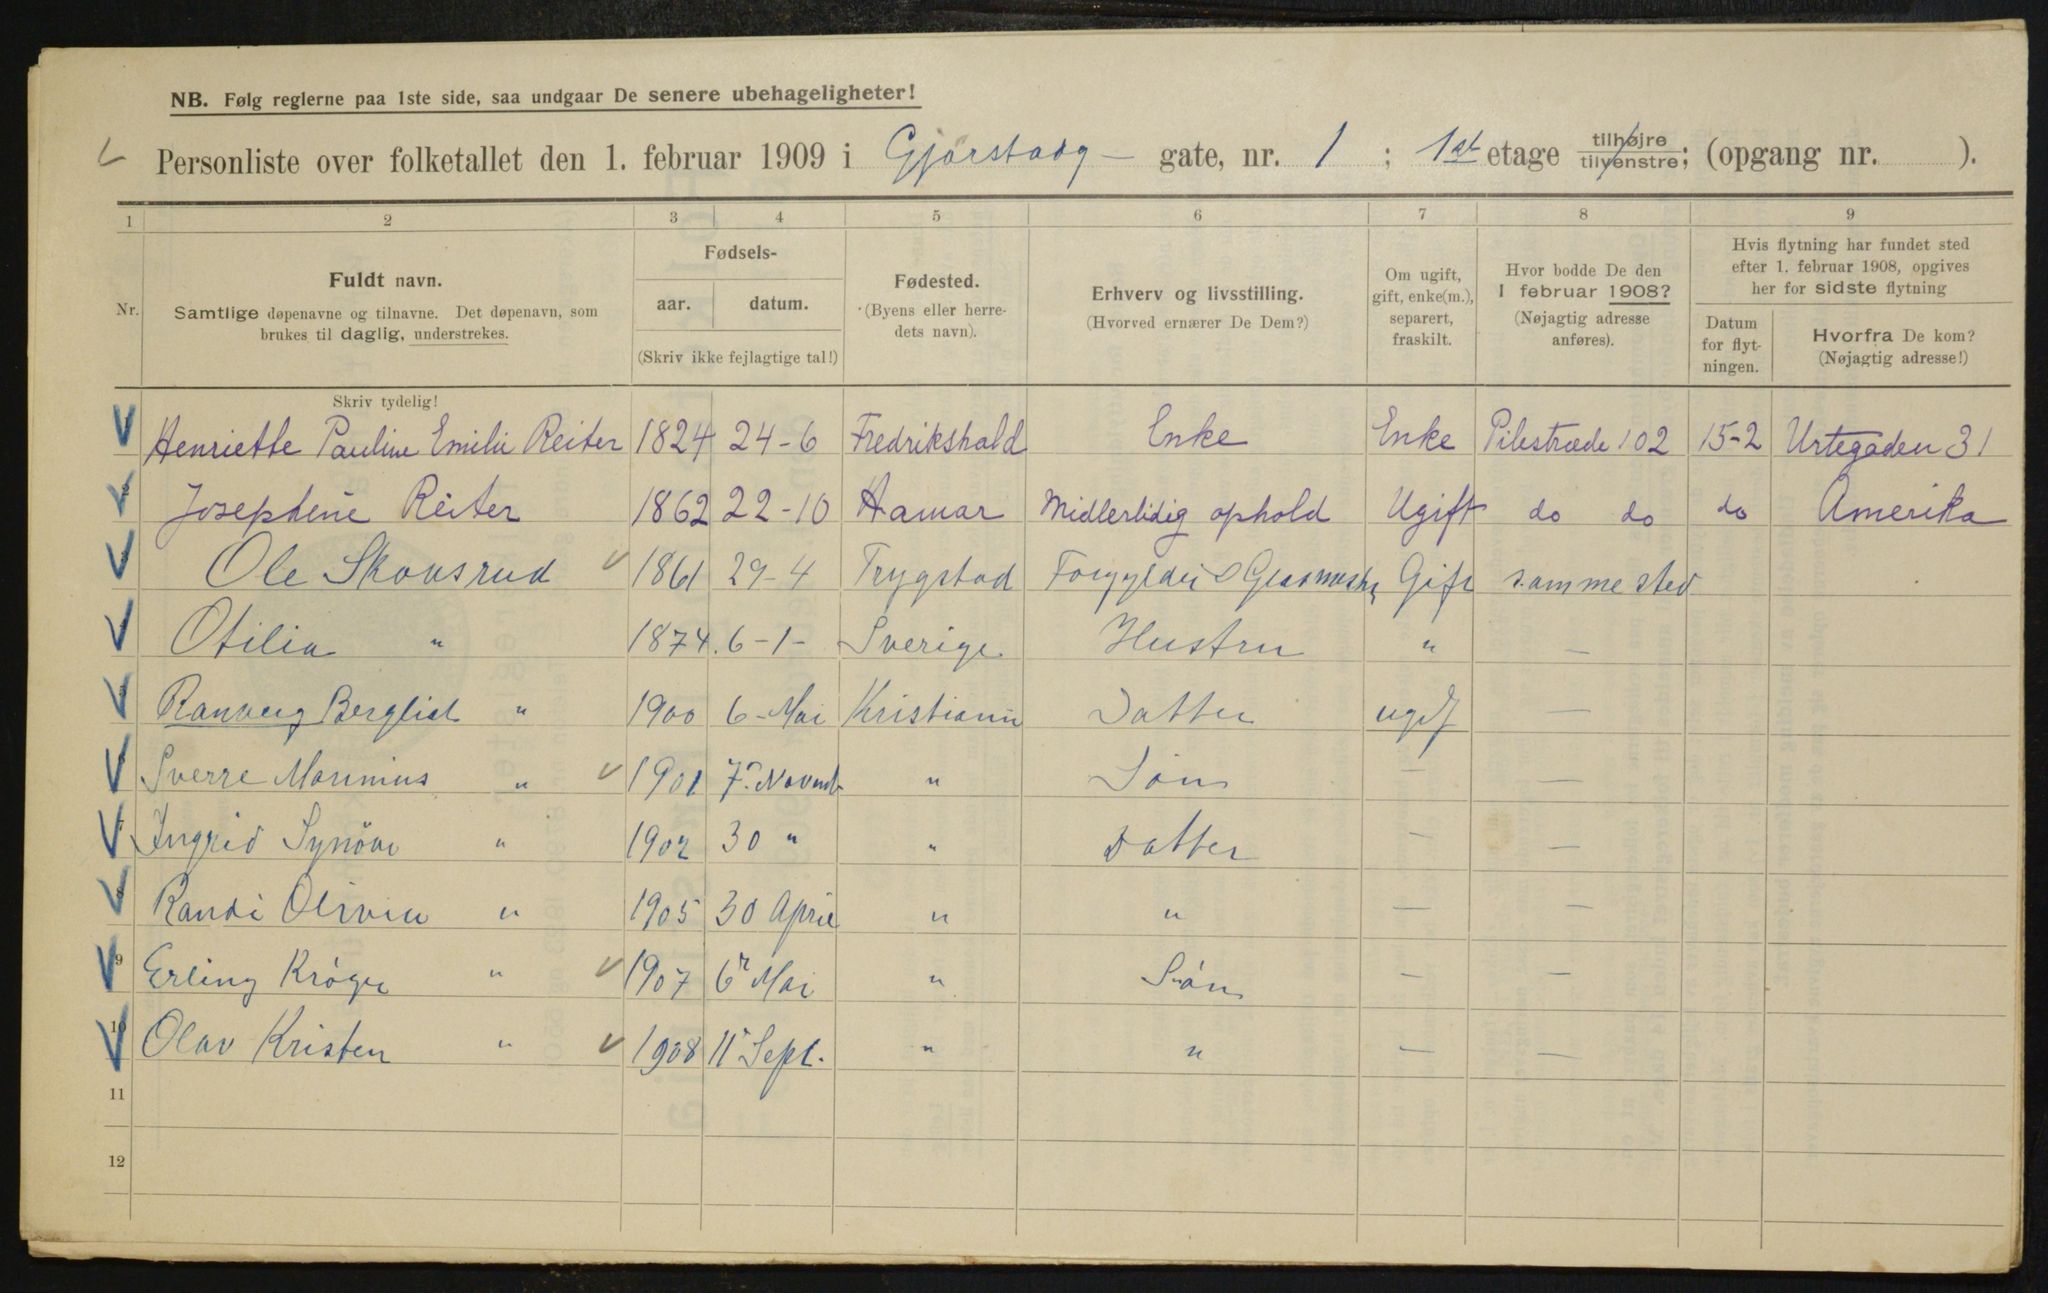 NB. Følg reglerne paa 1ste side, saa undgaar De senere ubehageligheter!
Personliste over folketallet den 1. februar 1909 i Gjørstadg — gate, nr. 1 ; 1st etage tilhøjre tilvenstre; (opgang nr. ).
1 2 3 4 5 6 7 8 9
Nr.
Fuldt navn.
Samtlige døpenavne og tilnavne. Det døpenavn, som
brukes til daglig, understrekes.
Fødsels-
aar. datum.
(Skriv ikke fejlagtige tal!)
Fødested.
(Byens eller herre-
dets navn).
Erhverv og livsstilling.
(Hvorved ernærer De Dem?)
Om ugift,
gift, enke(m.),
separert,
fraskilt.
Hvor bodde De den
1 februar 1908?
(Nøjagtig adresse
anføres).
Hvis flytning har fundet sted
efter 1. februar 1908, opgives
her for sidste flytning
Datum
for flyt-
ningen.
Hvorfra De kom?
(Nøjagtig adresse!)
Skriv tydelig!
Henriette Pauline Emilie Reiter 1824 24-6 Fredrikshald Enke Enke Pilestræde 102 15-2 Urtegaden 31
Josephine Reiter 1862 22-10 Hamar Midlertidig ophold Ugift do do do Amerika
Ole Skousrud 1861 29-4 Trygstad Gift sammested
Otilia " 1874. 6-1- Sverige Hustru " —
Ranveig Bergliot " 1900 6-Mai Kristiania Datter ugift —
Sverre Marinius " 1901 7. Novemb " Søn — —
Ingrid Synöve " 1902 30 " " Datter — —
8 Randi Olivia " 1905 30 April " " — —
9 Erling Kröger " 1907 6 Mai " Søn — —
10 Olav Kristen " 1908 11 Sept. " " — —
11
12